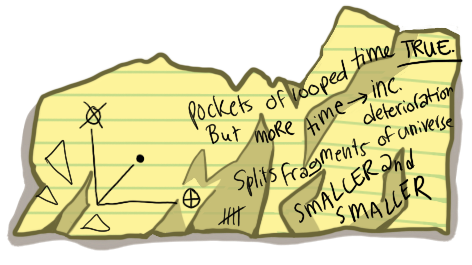 pockets of looped time TRUE.
But more time → inc.
deterioration
Splits fragments of universe
SMALLER and
SMALLER